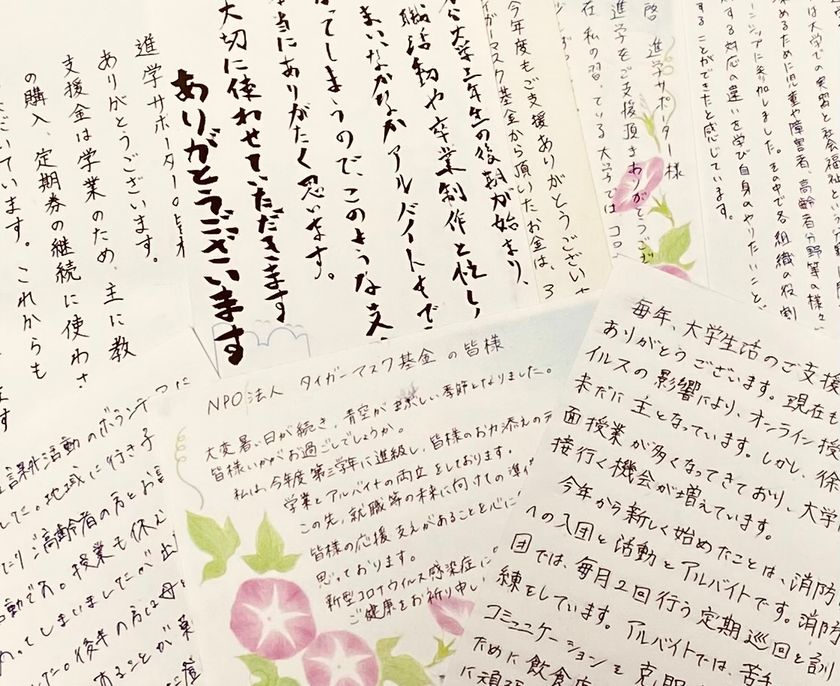 は大学での実習と社会福祉
ーンシップに参加しました。その中で各組織の役割
めるために児童や障害者、高齢者分野等の様々
する対応の違いを学び自身のやりたいこと、
することができたと感じています。
啓 進学サポーター様
進学をご支援頂きありがとうござ
在私の習っている大学では コロ
今年度もご支援ありがとうござい
イガーマスク基金から頂いたお金は、3
大学三年生の後期が始まり、
職活動や卒業制作と忙し
まいなかなかアルバイトもで
ってしまうので、このような支
当にありがたく思います。
大切に使わせていただきます
ありがとうございます
進学サポーターの皆様
ありがとうございます。
支援金は学業のため、主に教
の購入、定期券の継続に使わさ
ています。これからも
NPO法人 タイガーマスク基金 の皆様
大変暑い日が続き、青空がまぶしい季節となりました。
皆様いかがお過ごしでしょうか。
私は、今年度第三学年に進級し、皆様のお力添えの
学業とアルバイトの両立をしております。
この先、就職等の未来に向けての準
皆様の応援、支えがあることを心に
思っております。
新型コロナウイルス感染症に
ご健康をお祈り申し
毎年、大学生活のご支援
ありがとうございます。現在
イルスの影響により、オンライン授
未だに主となっています。しかし、徐
面授業が多くなってきており、大学
接行く機会が増えています。
今年から新しく始めたことは、消防
への入団と活動とアルバイトです。消防
団では、毎月2回行う定期巡回と訓
練をしています。アルバイトでは、苦手
コミュニケーションを克服
ために飲食店
に頑張
課外活動のボランティ
した。地域に行き子
たりご高齢者の方とお
動です。授業も休
ってしまいましたが
た。後半の方には
あることが